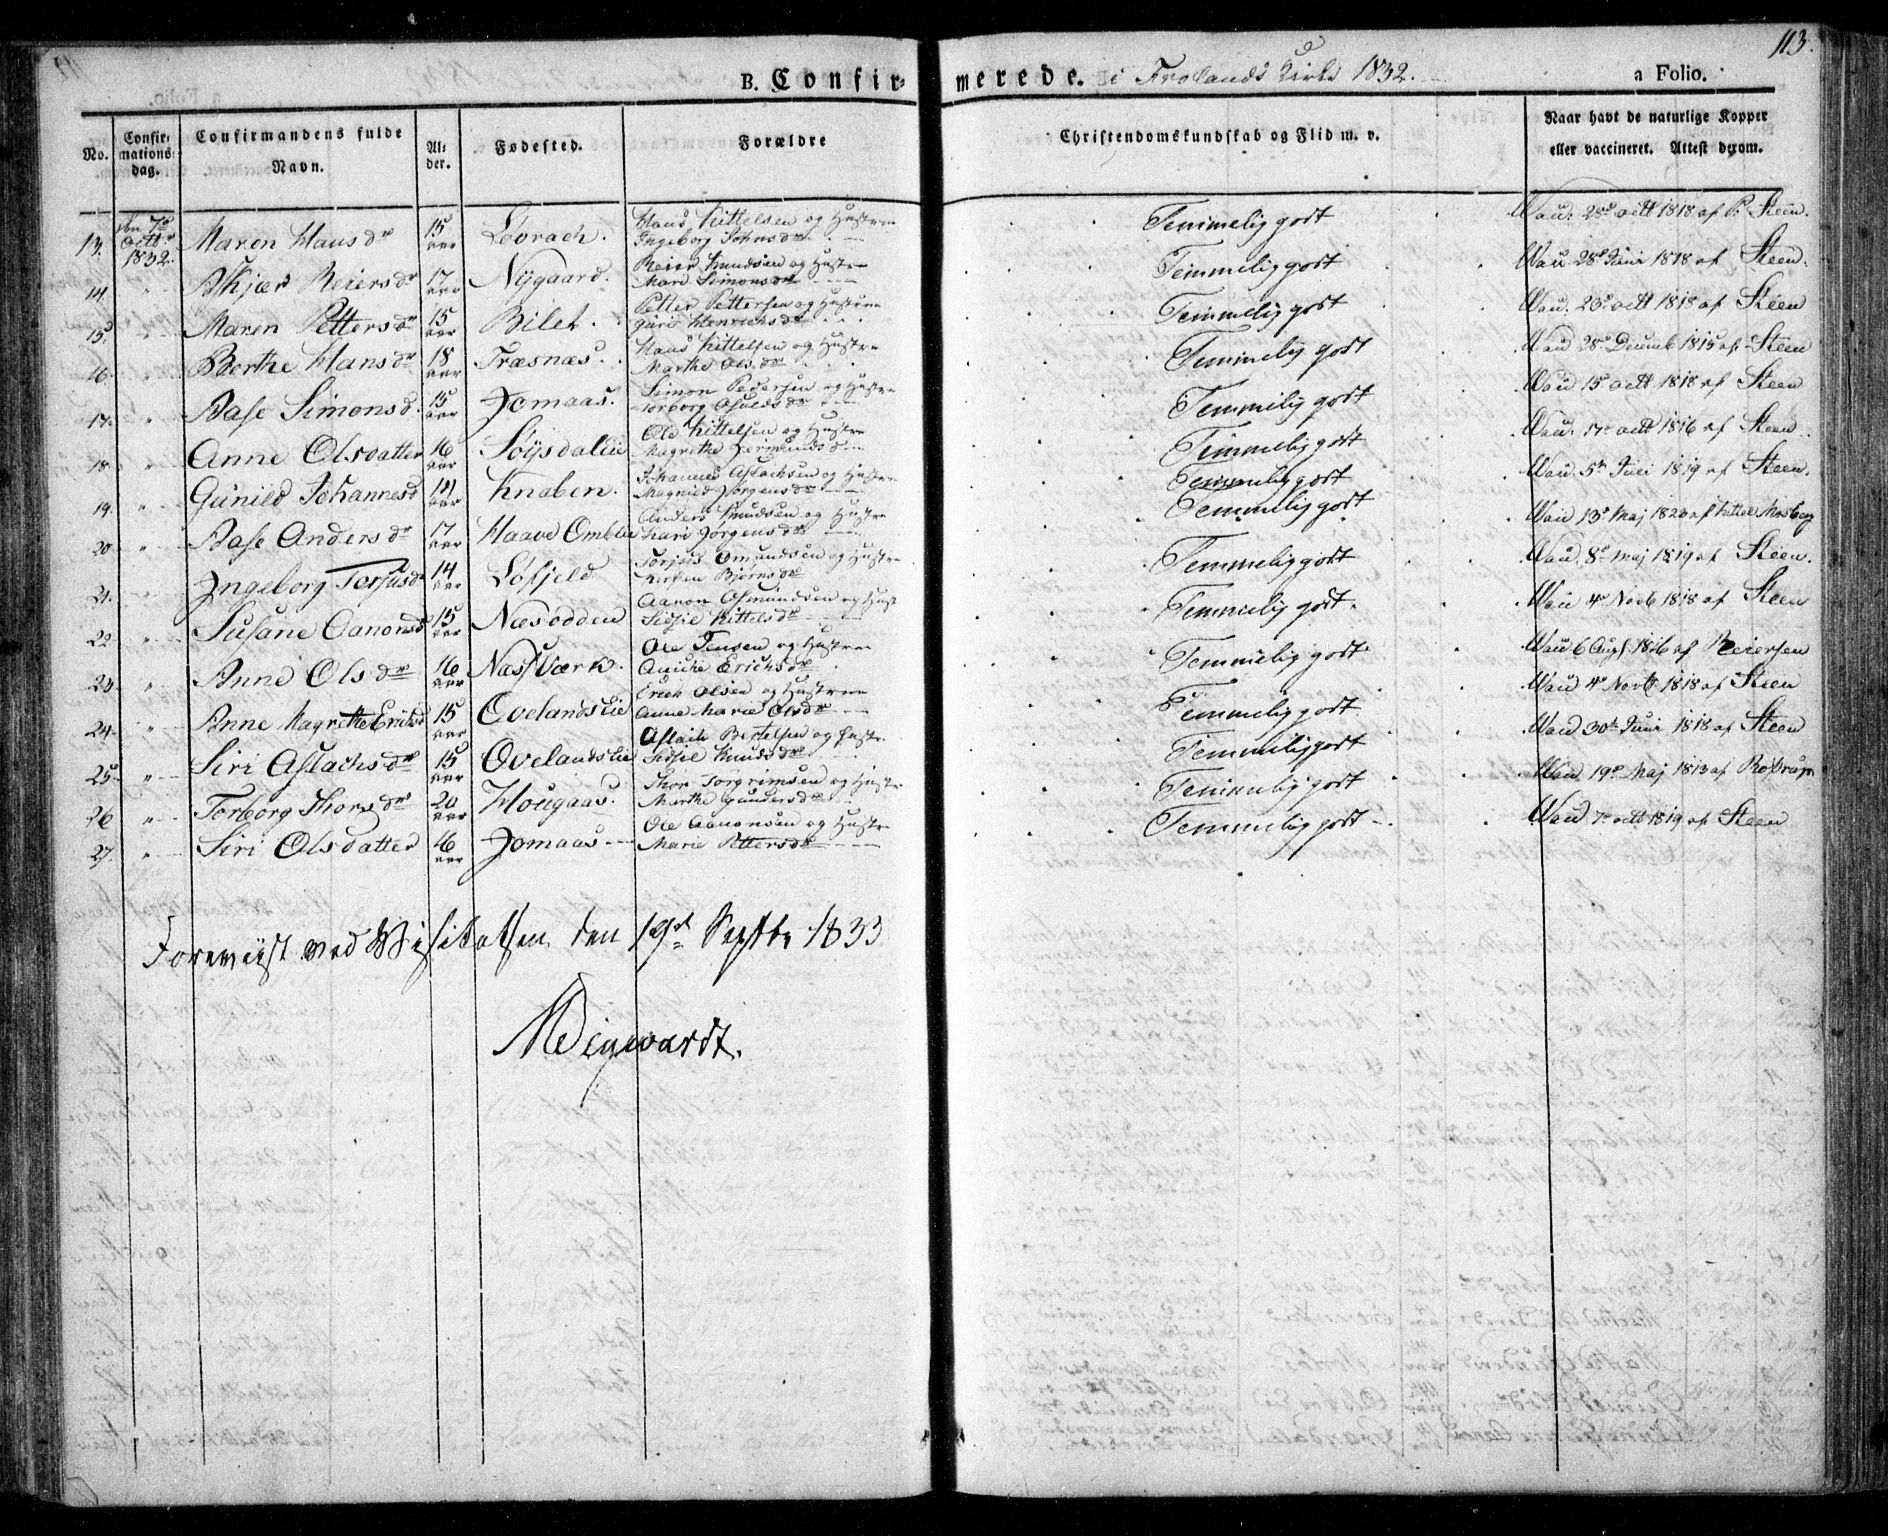 113.
B. Confirmerede. i Frolands Kirke 1832. a Folio.
No. Confirmationsdag. Confirmandens fulde Navn. Alder. Fødested. Forældre Christendomskundskab og Flid m. v. Naar havt de naturlige Kopper eller vaccineret. Attest derom.
13. den 7de Octbr 1832. Maren Hansdr 15 aar Løvrach. Hans Kittelsen og Hustrue Ingeborg Johnsdr Temmelig godt Vau. 28de octt 1818 af P. Steen.
14. " Askjær Reiersdr 17 aar Nygaard. Reier Knudsen og Hustrue Mari Simonsdr Temmelig godt Vau 28de Juni 1818 af Steen.
15. " Maren Pettersdr 15 aar Bilet. Petter Pettersen og Hustrue Guro Henrichsdr Temmelig godt Vau. 23de octt 1818 af Steen
16. " Berthe Hansdr 18 aar Træsnæs. Hans Kittelsen og Hustrue Marthe Olsdr Temmelig godt Vau 28de Decemb 1815 af Steen
17. " Aase Simonsd. 15 aar Jomaas. Simon Pedersen og Hustrue Torborg Asuldsdr Temmelig godt Vau 15de octt 1818 af Steen
18. " Anne Olsdatter 16 aar Søysdalen Ole Kittelsen og Hustrue Magrethe Germundsd Temmelig godt Vau. 17de octt 1816 af Steen
19. " Gunild Johannesd 14 aar Knaben. Johannes Aslachsen og Hustrue Magnild Jørgensdr Temmelig godt Vau 5te Juli 1819 af Steen.
20 " Aase Andersdr 17 aar Haave Omblie Anders Knudsen og Hustrue Kari Jørgensdr Temmelig godt Vau 13de Maj 1820 af Kittel Mosberg
21. " Ingeborg Terjusdr 14 aar Løfjeld Torjus Omundsen og Hustrue Kirsten Bjørnsdr Temmelig godt Vau 8de Maj 1819 af Steen.
22. " Susane Aanonsd 15 aar Næsodden Aanon Asmundsen og Hust Sidsil Kittelsdr Temmelig godt. Vau 4de Novb 1818 af Steen
23 " Anne Olsdr 16 aar Næs Værk. Ole Jensen og Hustrue Anichе Erichsdr Temmelig godt Vau 6 Aug 1816 af Reiersen
24 " Anne Magrethe Erichsd 15 aar Ovelandslie Erich Olsen og Hustrue Anne Marie Olsdr Temmelig godt Vau 4de Novb 1818 af Steen
25 " Siri Aslachsdr 15 aar Ovelandslie Aslach Bertelsen og Hustr Sidsil Knudsdr Temmelig godt Vau 30te Juni 1818 af Steen
26 " Torborg Thorsdr 20 aar Hougaas. Thor Torgrimsen og Hustr Marthe Gundersdr Temmelig godt Vau 19de Maj 1813 af
27. " Siri Olsdatter 16 aar Jomaas Ole Aanonsen og Hustrue Marie Pettersdr Temmelig godt Vau 7de octt 1819 af Steen
Foreviist ved Visitatsen den 19de Septbr 1833